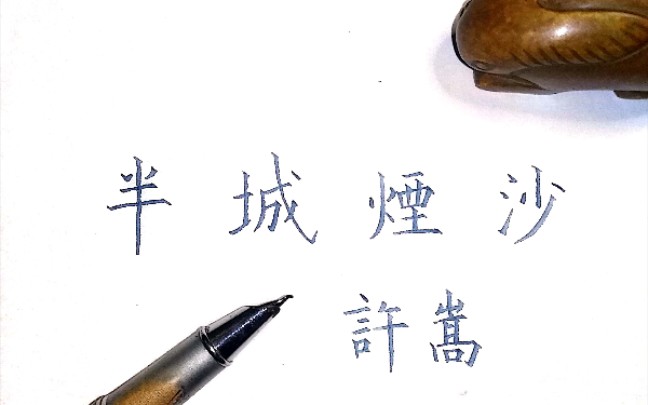 半城煙沙
許嵩